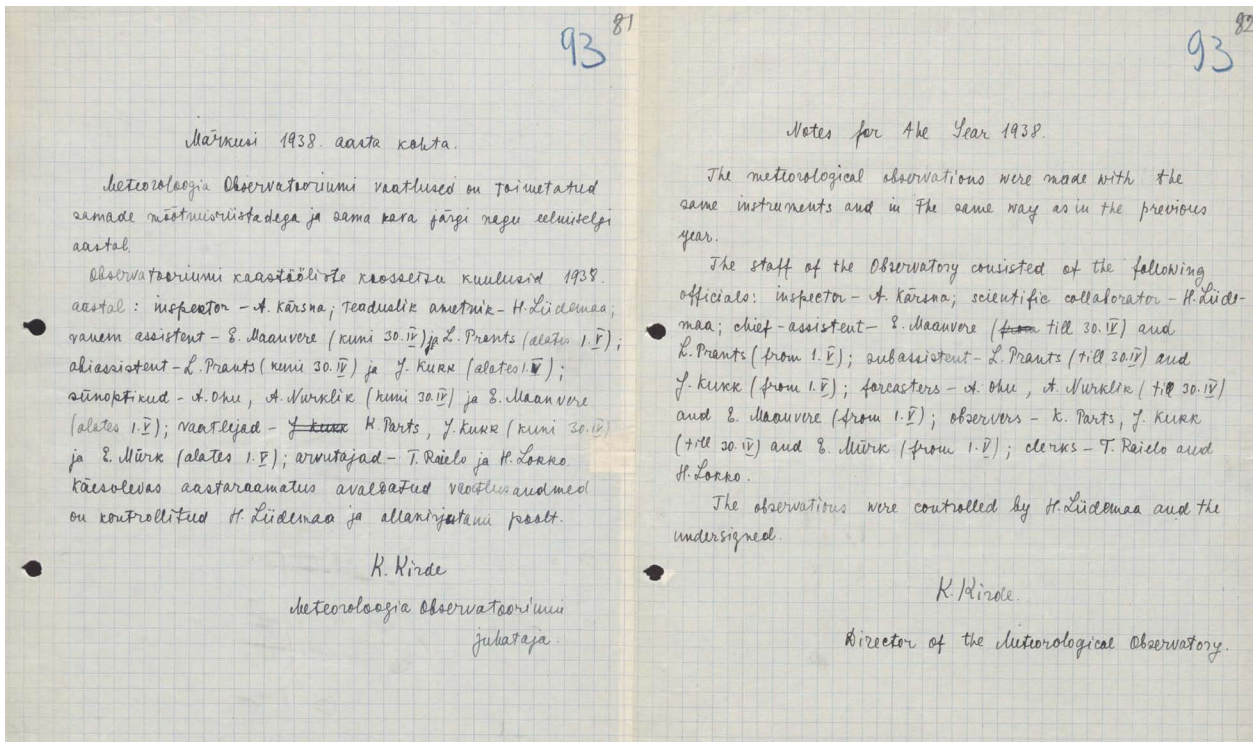 81
93
Märkusi 1938. aasta kohta.
Meteoroloogia Observatooriumi vaatlused on toimetatud
samade mõõtmisriistadega ja sama kava järgi nagu eelmiselgi
aastal.
Observatooriumi kaastööliste koosseisu kuulusid 1938.
aastal: inspektor - A. Kärsna; teaduslik ametnik - H. Liidemaa;
vanem assistent - E. Maanvere (kuni 30.IV) ja L. Prants (alates 1.V);
abiassistent - L. Prants (kuni 30.IV) ja J. Kukk (alates 1.V);
sünoptikud - A. Ohu, A. Nurklik (kuni 30.IV) ja E. Maanvere
(alates 1.V); vaatlejad - J. Kukk K. Parts, J. Kukk (kuni 30.IV)
ja E. Mürk (alates 1.V); arvutajad - T. Raielo ja H. Lokko.
Käesolevas aastaraamatus avaldatud vaatlusandmed
on kontrollitud H. Liidemaa ja allakirjutanu poolt.
K. Kirde
Meteoroloogia Observatooriumi
juhataja.
82
93
Notes for the Year 1938.
The meteorological observations were made with the
same instruments and in the same way as in the previous
year.
The staff of the Observatory consisted of the following
officials: inspector - A. Kärsna; scientific collaborator - H. Liide-
maa; chief-assistent - E. Maanvere (from till 30.IV) and
L. Prants (from 1.V); subassistent - L. Prants (till 30.IV) and
J. Kukk (from 1.V); forcasters - A. Ohu, A. Nurklik (till 30.IV)
and E. Maanvere (from 1.V); observers - K. Parts, J. Kukk
(till 30.IV) and E. Mürk (from 1.V); clerks - T. Raielo and
H. Lokko.
The observations were controlled by H. Liidemaa and the
undersigned.
K. Kirde.
Director of the Meteorological Observatory.